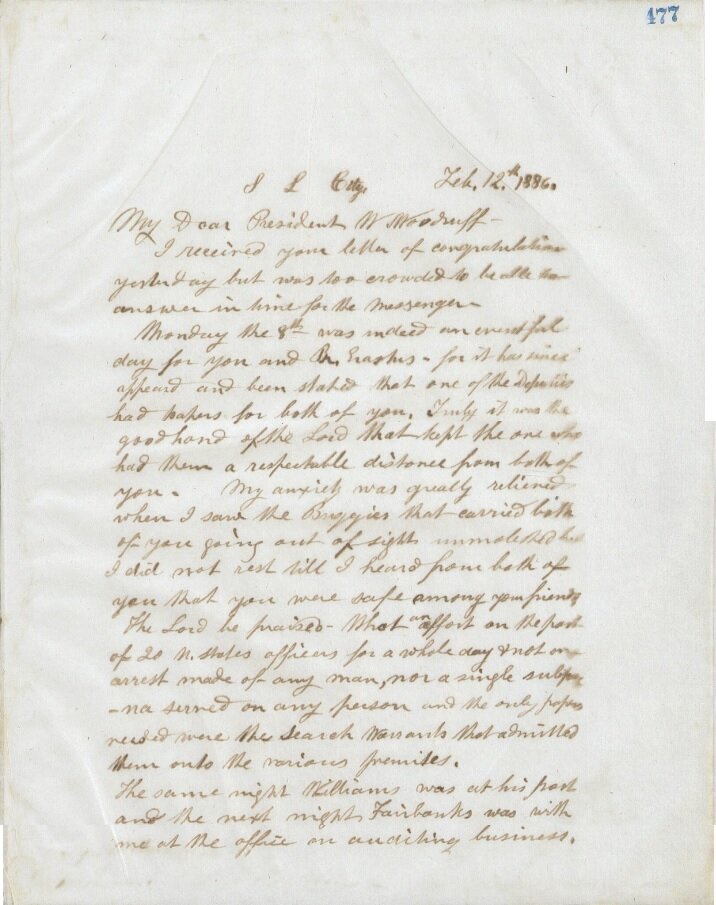 477
S L City, Feb. 12.th 1886.
My Dear President W Woodruff-
I received your letter of congratulation
yesterday but was too crowded to be able to
answer in time for the messenger-
Monday the 8th was indeed an eventful
day for you and Br. Erastus - for it has since
appeard and been stated that one of the Deputies
had papers for both of you. Truly it was the
good hand of the Lord that kept the one who
had them a respectable distance from both of
you - My anxiety was greatly relieved
when I saw the Buggies that carried both
of you going out of sight unmolested but
I did not rest till I heard from both of
you that you were safe among your friends
The Lord be praised - What an effort on the part
of 20 U. States officers for a whole day & not an
arrest made of any man, nor a single subpe
-na served on any person and the only papers
needed were the Search Warrants that admitted
them onto the various premises.
The same night Williams was at his post
and the next night Fairbanks was with
me at the office on auditing business.